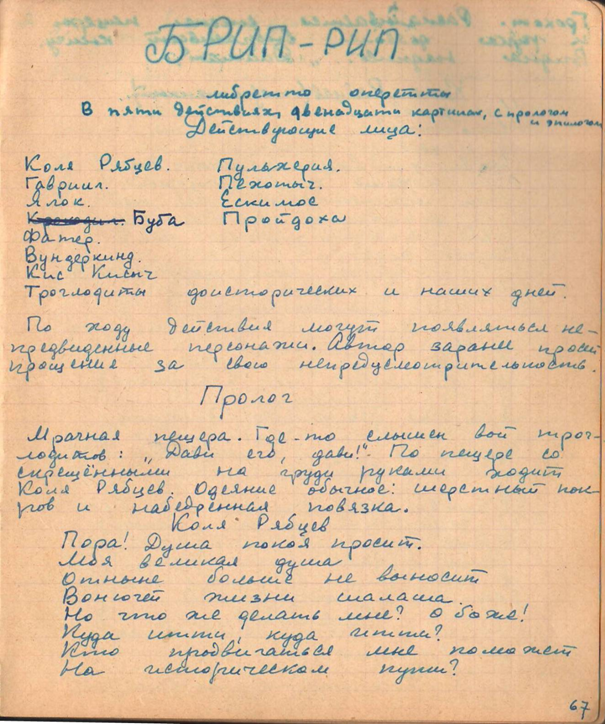 БРИП-РИП
либретто оперетты
В пяти действиях, двенадцати картинах, с прологом
и эпилогом
Действующие лица:
Коля Рябцев. Пульхерия.
Гавриил. Пехотыч.
Ялок. Ескимос
Крокодил. Буба Пройдоха
Фатер.
Вундеркинд.
Кис Кисыч
Троглодиты доисторических и наших дней.
По ходу действия могут появляться не-
предвиденные персонажи. Автор заранее просит
прощение за свою непредусмотрительность.
Пролог
Мрачная пещера. Где-то слышен вой трог-
лодитов: „Дави его, дави!" По пещере со
скрещёнными на груди руками ходит
Коля Рябцев. Одеяние обычное: шерстный пок-
ров и набедренная повязка.
Коля Рябцев
Пора! Душа покоя просит.
Моя великая душа
Отныне больше не выносит
Вонючей жизни шалаша.
Но что же делать мне? о боже!
Куда итти, куда итти?
Кто продвигаться мне поможет
На историческом пути?
67